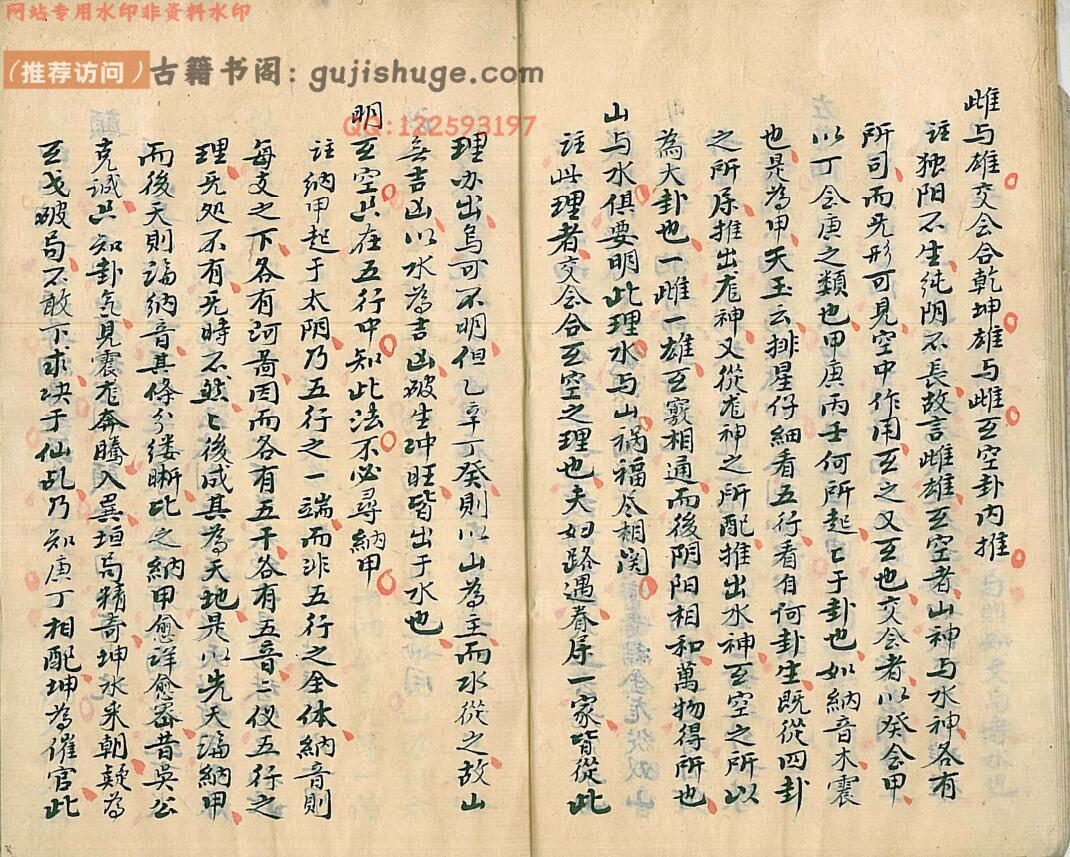 网站专用水印非资料水印
（推荐访问）古籍书阁：gujishuge.com
QQ:122593197
雌与雄交会合乾坤雄与雌互空卦内推
註独阳不生纯阴不長故言雌雄互空者山神与水神各有
所司而旡形可見空中作用互之又互也交会者以癸会甲
以丁会庚之類也甲庚丙壬何所起乚于卦也如納音木震
也是為甲天玉云排星仔細看五行看自何卦生既從四卦
之所属推出龙神又從龙神之所配推出水神互空之所以
為大卦也一雌一雄互竅相通而後阴阳相和萬物得所也
山与水俱要明此理水与山祸福尽相関
註此理者交会合互空之理也夫妇路遇眷属一家皆從此
理亦出烏可不明但乙辛丁癸則以山為主而水從之故山
無吉凶以水為吉凶破生冲旺皆出于水也
明互空只在五行中知此法不必尋納甲
註納甲起于太阴乃五行之一端而非五行之全体納音則
每支之下各有河啚因而各有五干各有五音二仪五行之
理旡処不有旡時不然乚後成其為天地是以先天論納甲
而後天則論納音其條分缕晰比之納甲愈详愈密昔吳公
克诚只知卦气見震龙奔騰入巽垣局精奇坤水来朝疑為
互戈破局不敢下求决于仙乩乃知庚丁相配坤為催官此